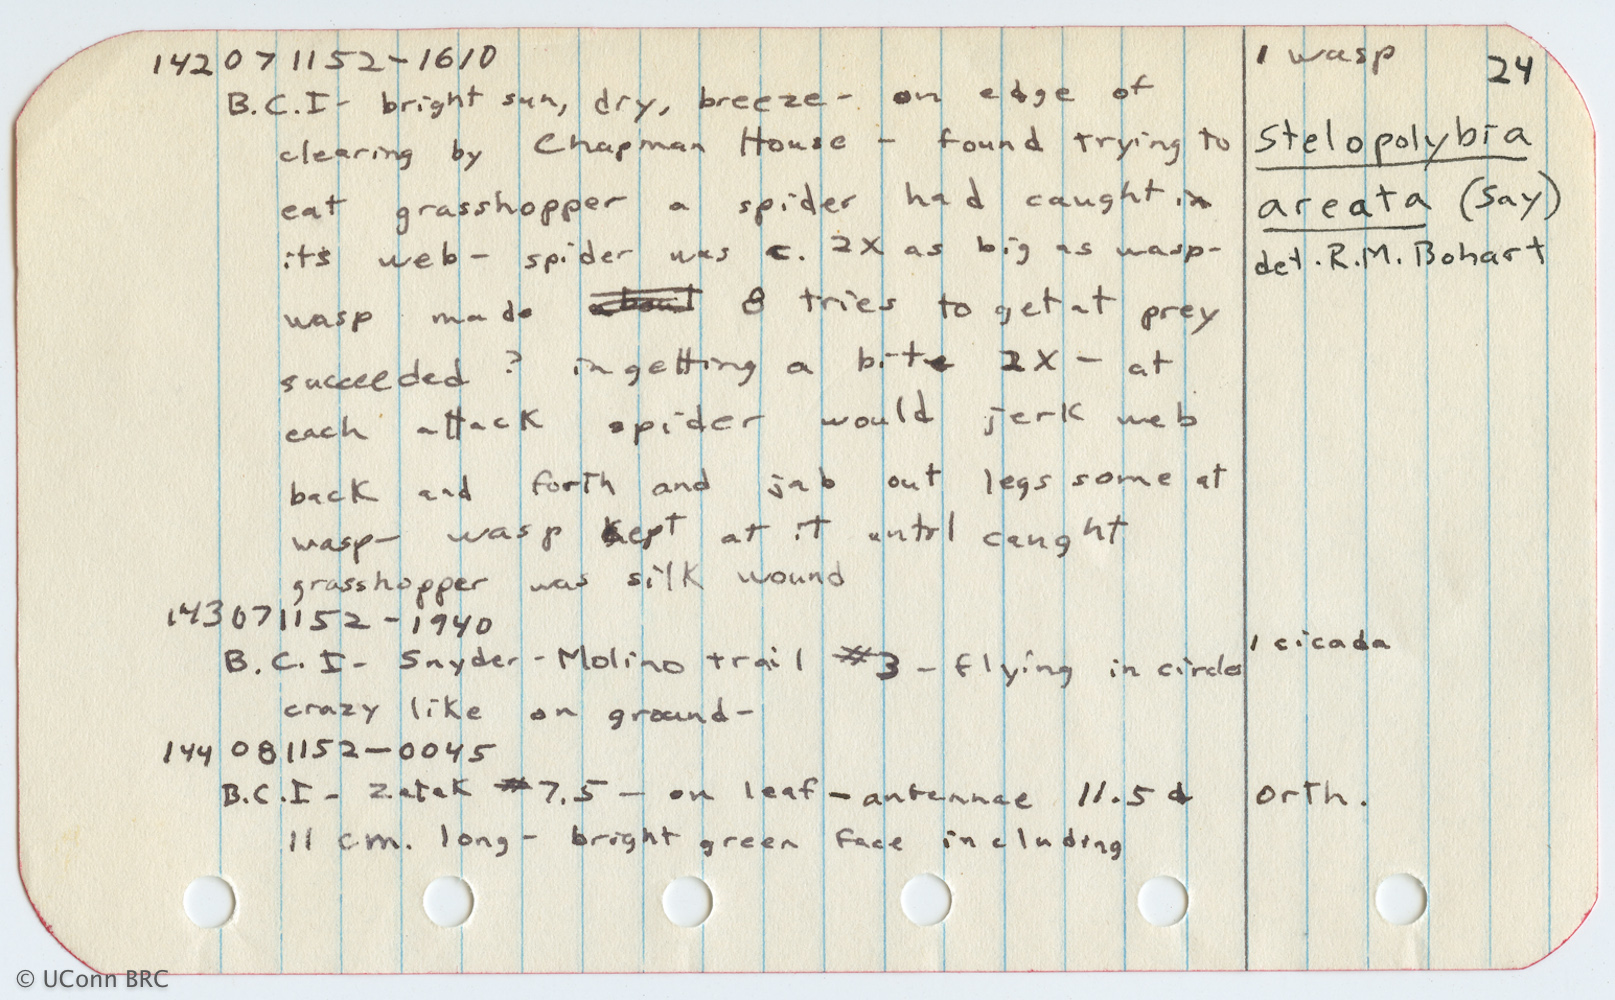 24
142 071152-1610
1 wasp
B.C.I- bright sun, dry, breeze- on edge of
clearing by Chapman House - found trying to
Stelopolybia
eat grasshopper a spider had caught in
areata (Say)
its web- spider was c. 2X as big as wasp-
det. R.M. Bohart
wasp made about 8 tries to get at prey
succeeded ? in getting a bite 2X - at
each attack spider would jerk web
back and forth and jab out legs some at
wasp- wasp kept at it until caught
grasshopper was silk wound
143 071152-1940
1 cicada
B.C.I- Snyder-Molino trail #3 - flying in circles
crazy like on ground-
144 081152-0045
B.C.I- Zetek #7.5 - on leaf - antennae 11.5 &
Orth.
11 cm. long- bright green face including
© UConn BRC